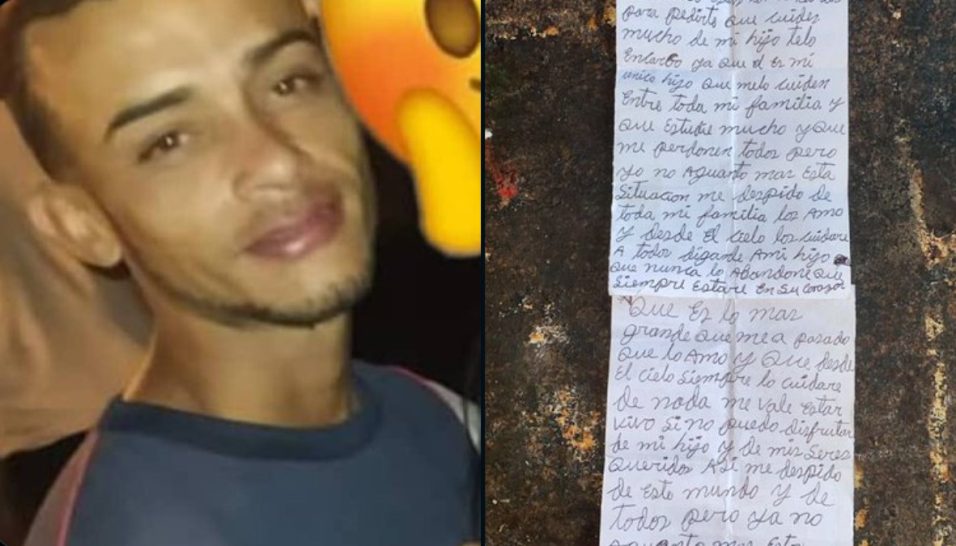 para pedirte que cuiden
mucho de mi hijo telo
Encargo ya que el Es mi
unico hijo que melo cuiden
Entre toda mi familia y
que Estudie mucho y que
me perdonen todos pero
yo no Aguanto mas Esta
Situacion me despido de
toda mi familia los Amo
y desde El cielo los cuidare
A todos digande Ami hijo
que nunca lo Abandone que
Siempre Estare En su corazon
Que Es lo mas
grande que me a pasado
que lo Amo y que desde
El cielo siempre lo cuidare
de nada me vale Estar
vivo si no puedo disfrutar
de mi hijo y de mis seres
queridos Asi me despido
de Este mundo y de
todos pero ya no
aguanto mas Esta